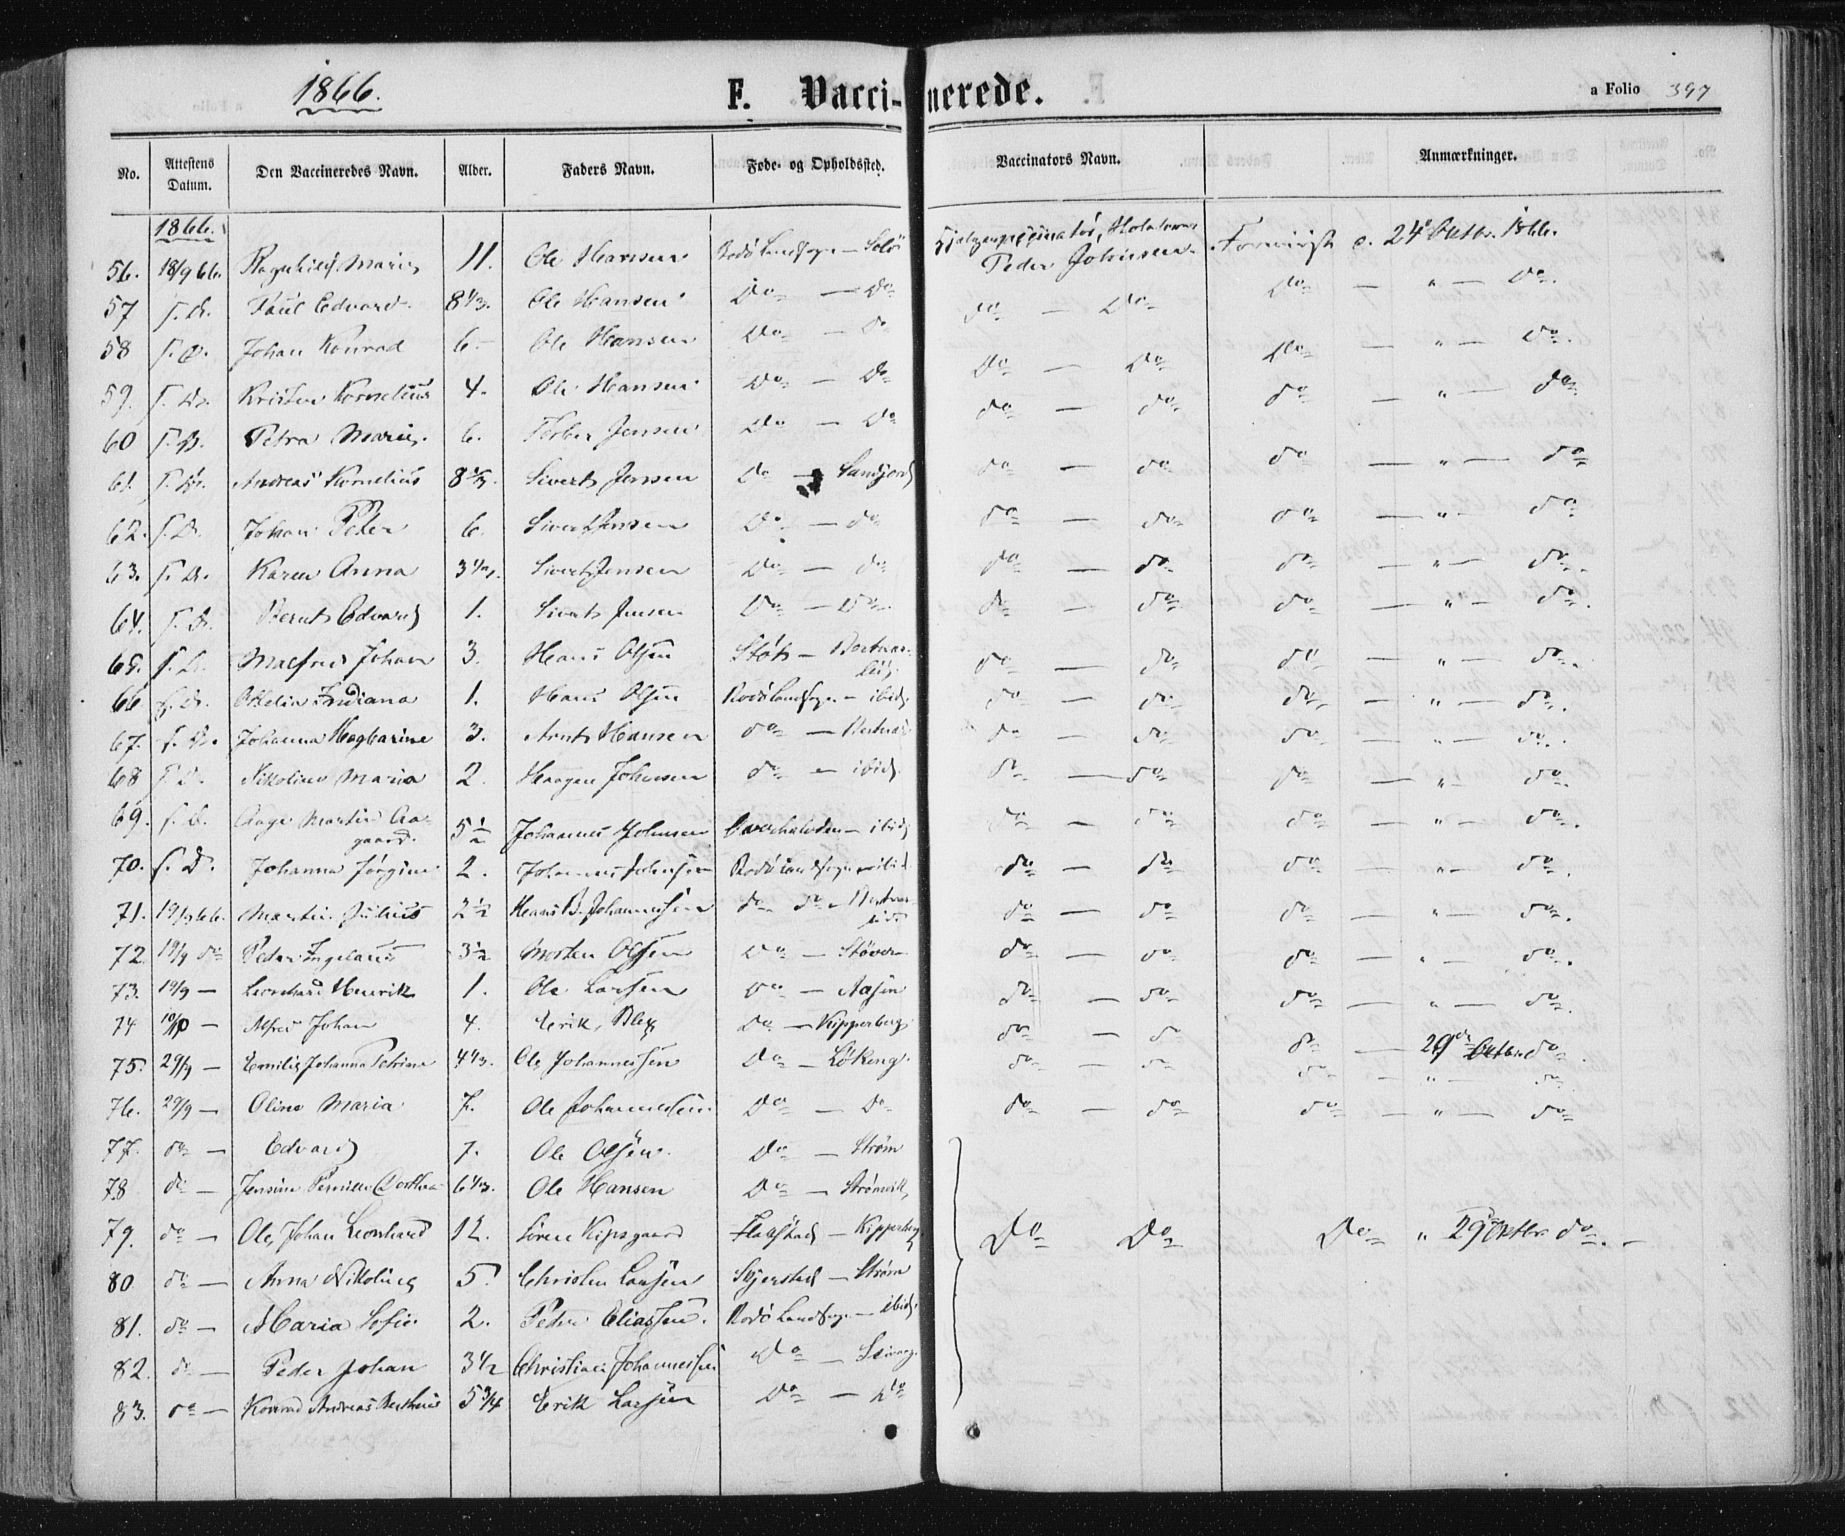 1866.
F. Vacci-nerede.
a Folio 397
No. Attestens Datum. Den Vaccineredes Navn. Alder. Faders Navn. Føde- og Opholdssted. Vaccinators Navn. Anmærkninger.
1866.
56. 18/9 66. Ragnhild Marie 11. Ole Hansen Rodö Landsogn – Selö Hjælpevaccinatör, Peder Johnsen. Forevist d. 24 Octbr. 1866.
57 s. D. Paul Edvard 8 1/3. Ole Hansen Do – Do Do – Do Do – " – Do.
58 s. D. Johan Konrad 6. Ole Hansen Do – Do Do – Do Do – " – Do.
59. s. D. Kristen Kornelius 4. Ole Hansen Do – Do do – do do – " – do.
60 s. D. Petra Marie. 6. Jensen Do – Do do – do do – " – do
61. s. D. Andreas Kornelius 8 Sivert Jensen Do – do – do do – " – do
62. s. D. Johan Peder 6. Sivert Jensen Do – do do – do do – " – do.
63. s. D. Karen Anna 3 1/2. Sivert Jensen Do – do do – do do – " – do.
64. s. D. Bernt Edvard 1. Sivert Jensen Do – Do. do – do do – " – do.
65. s. D. Johan 3. Hans Olsen Stöt – do – do do – " – do.
66 s. D. Indiana 1. Hans Olsen Rodö Landsogn – ibid. do – do do. – " – do.
67. s. D. Johanna Hagbarine 3. Arnt Hansen do – do – do do – " – do.
68 s. D. Nikoline Maria 2. Haagen Johnsen do – ibid. do – do do – " – do.
69. s. D. Aage Martin Aagaard. 5 1/2 Johannes Johnsen Overhalvden – ibid do – do do – " – do.
70. s. D. Johanna Jörgine 2. Johannes Johnsen Rodö Landsogn – ibid do – do do – " – do.
71. 19/9 66. Martin Julius 2 1/2 Hans B. Johannessen do do – do – do do – " – do.
72. 19/9 do Peder Ingelaus 3 1/2 Morten Olsen Do – Stöver do – do do – " – do.
73. 19/9 – Leonhard Henrik 1. Ole Larsen Do – Aasen do – do do – " – do.
74 – Alfred Johan 4. Erik Do – Kipperberg do – do do – 29de Octbr. do.
75. 29/9 – Emilie Johanna Petrine 4 1/3. Ole Johannessen Do – Lökeng. do – do do – " – do
76. 29/9 – Oline Maria 7. Ole Johannessen Do – Do do – do do – " – do
77. do – Edvard 7. Ole Olsen Do – Ström
78 do – Jensine Pernille Dorthea 6 1/2. Ole Hansen Do – Strömvik
79. do – Ole Johan Leonhard 12. Sören Kipsgaard – Kipperberg Do Do Do " 29 Octbr. do. –
80 do – Anna Nikoline 5. Christen Larsen Skjerstad – Ström
81. do – Maria Sofie 2. Peder Eliassen. Rodö Landsogn – ibid.
82. do – Peder Johan 3 1/2 Christian Johannessen Do –
83. do – Konrad Andreas 5 3/4 Erik Larsen Do – Do